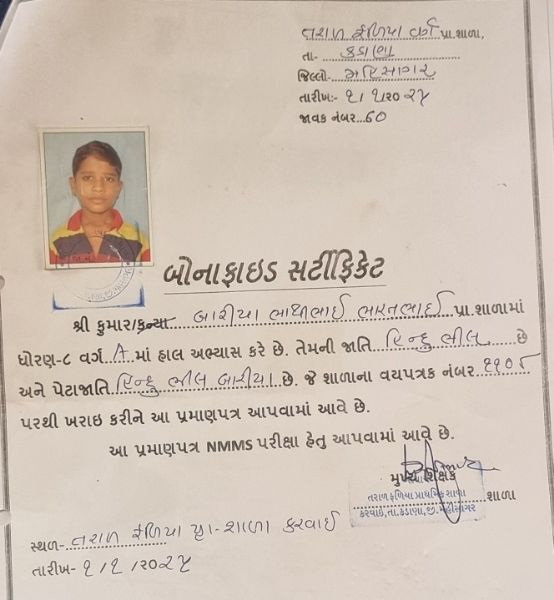 તરાળ ફળિયા વર્ગ પ્રા.શાળા,
તા- કડાણા
જિલ્લો:- મહિસાગર
તારીખ:- ૧/ ૧/૨૦૨૫
જાવક નંબર...60
બોનાફાઇડ સર્ટીફિકેટ
શ્રી કુમાર/કન્યા.. બારીયા ભાથીભાઈ ભરતભાઈ પ્રા.શાળામાં
ધોરણ-૮ વર્ગ A માં હાલ અભ્યાસ કરે છે. તેમની જાતિ હિન્દુ ભીલ છે
અને પેટાજાતિ હિન્દુ ભીલ બારીયા છે. જે શાળાના વયપત્રક નંબર ૧૧૦૬
પરથી ખરાઇ કરીને આ પ્રમાણપત્ર આપવામાં આવે છે.
આ પ્રમાણપત્ર NMMS પરીક્ષા હેતુ આપવામાં આવે છે.
મુખ્ય શિક્ષક
તરાળ ફળિયા પ્રાથમિક શાળા શાળા
કરવાઈ, તા.કડાણા, જી.મહીસાગર
સ્થળ- તરાળ ફળિયા પ્રા-શાળા કરવાઈ
તારીખ- ૧/૧/૨૦૨૫